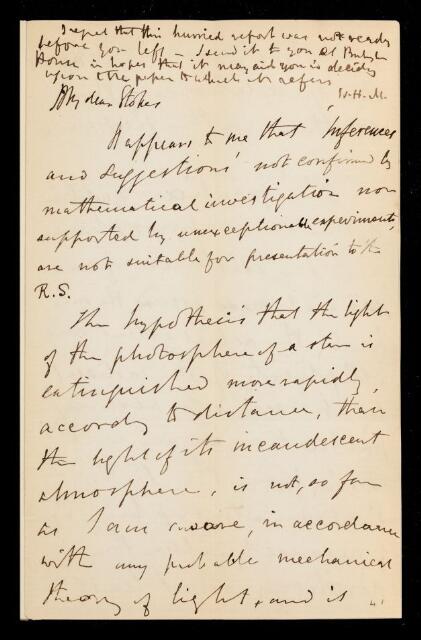 I regret that this hurried report was not ready
before you left – I send it to you at Burl.
House in hopes that it may aid you in deciding
upon the paper to which it refers
W.H.M.
My dear Stokes
It appears to me that 'Inferences
and Suggestions' not confirmed by
mathematical investigation nor
supported by unexceptionable experiments,
are not suitable for presentation to the
R.S.
The hypothesis that the light
of the photosphere of a star is
extinguished more rapidly,
according to distance, than
the light of its incandescent
atmosphere, is not, so far
as I am aware, in accordance
with any probable mechanical
theory of light, and it